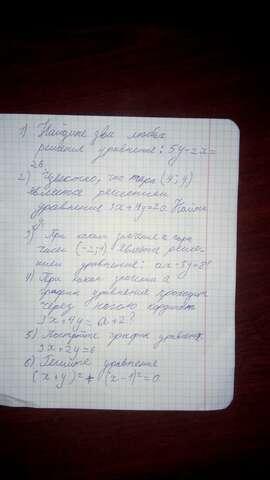 1) Найдите два любых
решения уравнения: 5y-2x=
26.
2) Известно, что пара (4; y)
является решением
уравнения 3x+4y=20. Найти
y.
3) При каком значении a пара
чисел (-2; 1) является реше-
нием уравнения: ax-5y=8?
4) При каком значении a
график уравнения проходит
через начало координат
3x+4y=a+2?
5) Постройте график уравнения
3x+2y=6
6) Решите уравнение
(x+y)²+(x-1)²=0